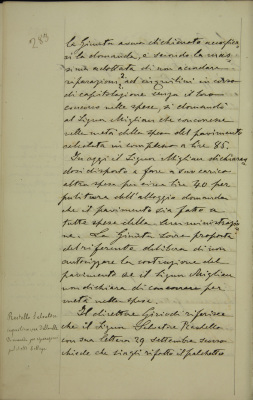 289
la Giunta aveva dichiarato accogliersi
la domanda, e secondo la mas-
sima adottata di non accordare
riparazioni ad inquilini in corso
di capitolazione senza il loro
concorso nelle spese, si domandò
al Signor Migliau che concorresse
nella metà della spesa del pavimento
calcolata in complesso a lire 85.
In oggi il Signor Migliau dichiaran-
dosi disposto a fare a suo carico
altra spesa per circa lire 40 per
pulitura dell'alloggio domanda
che il pavimento sia fatto a
tutte spese della Amministrazio-
ne. La Giunta sopra proposta
del riferente delibera di non
autorizzare la costruzione del
pavimento se il Signor Migliau
non dichiara di concorrere per
metà nella spesa.
Il direttore Girio di riferisce
che il Signor Salvatore
con sua lettera 29 settembre scorso
chiede che singli rifatto il palchetto
Salvatore